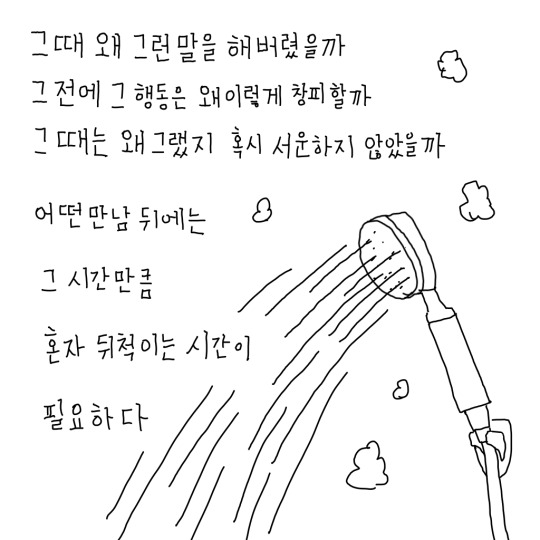 그때 왜 그런 말을 해버렸을까
그전에 그 행동은 왜이렇게 창피할까
그때는 왜그랬지 혹시 서운하지 않았을까
어떤 만남 뒤에는
그 시간만큼
혼자 뒤척이는 시간이
필요하다